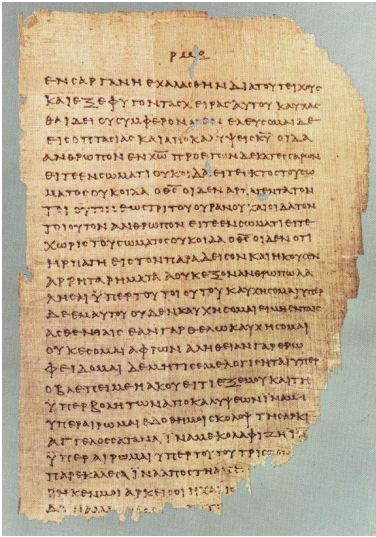 ΕΝϹΑΡΓΑΝΗΕΧΑΛΑϹΘΗΝΔΙΑΤΟΥΤΕΙΧΟΥϹ
ΚΑΙΕΞΕΦΥΓΟΝΤΑϹΧΕΙΡΑϹΑΥΤΟΥΚΑΥΧΑϹ
ΘΑΙΔΕΙΟΥϹΥΜΦΕΡΟΝΕΛΕΥϹΟΜΑΙΔΕ
ΕΙϹΟΠΤΑϹΙΑϹΚΑΙΑΠΟΚΑΛΥΨΕΙϹΚ̅Υ̅ΟΙΔΑ
ΑΝΘΡΩΠΟΝΕΝΧ̅Ω̅ΠΡΟΕΤΩΝΔΕΚΑΤΕϹϹΑΡΩΝ
ΕΙΤΕΕΝϹΩΜΑΤΙΟΥΚΟΙΔΑΕΙΤΕΕΚΤΟϹΤΟΥϹΩ
ΜΑΤΟϹΟΥΚΟΙΔΑΟΘ̅Ϲ̅ΟΙΔΕΝΑΡΠΑΓΕΝΤΑΤΟΝ
ΤΟΙΟΥΤΟΝΕΩϹΤΡΙΤΟΥΟΥΡΑΝΟΥΚΑΙΟΙΔΑΤΟΝ
ΤΟΙΟΥΤΟΝΑΝΘΡΩΠΟΝΕΙΤΕΕΝϹΩΜΑΤΙΕΙΤΕ
ΧΩΡΙϹΤΟΥϹΩΜΑΤΟϹΟΥΚΟΙΔΑΟΘ̅Ϲ̅ΟΙΔΕΝΟΤΙ
ΗΡΠΑΓΗΕΙϹΤΟΝΠΑΡΑΔΕΙϹΟΝΚΑΙΗΚΟΥϹΕΝ
ΑΡΡΗΤΑΡΗΜΑΤΑΑΟΥΚΕΞΟΝΑΝΘΡΩΠΩΛΑ
ΛΗϹΑΙΫΠΕΡΤΟΥΤΟΙΟΥΤΟΥΚΑΥΧΗϹΟΜΑΙΥΠΕΡ
ΔΕΕΜΑΥΤΟΥΟΥΔΕΝΚΑΥΧΗϹΟΜΑΙΕΙΜΗΕΝΤΑΙϹ
ΑϹΘΕΝΕΙΑΙϹΕΑΝΓΑΡΘΕΛΩΚΑΥΧΗϹΟΜΑΙ
ΟΥΚΕϹΟΜΑΙΑΦΡΩΝΑΛΗΘΕΙΑΝΓΑΡΕΡΩ
ΦΕΙΔΟΜΑΙΔΕΜΗΤΙϹΕΜΕΛΟΓΙϹΗΤΑΙΥΠΕΡ
ΟΒΛΕΠΕΙΜΕΗΑΚΟΥΕΙΤΙΕΞΕΜΟΥΚΑΙΤΗ
ΫΠΕΡΒΟΛΗΤΩΝΑΠΟΚΑΛΥΨΕΩΝΪΝΑΜΗ
ΥΠΕΡΑΙΡΩΜΑΙΕΔΟΘΗΜΟΙϹΚΟΛΟΨΤΗϹΑΡΚΙ
ΑΓΓΕΛΟϹϹΑΤΑΝΑΪΝΑΜΕΚΟΛΑΦΙΖΗΪΝΑ
ΫΠΕΡΑΙΡΩΜΑΙΥΠΕΡΤΟΥΤΟΥΤΡΙϹ
ΠΑΡΕΚΑΛΕϹΑΪΝΑΑΠΟϹΤΗ
ΡΗΚΕΝΜΟΙΑΡΚΕΙϹΟΙΗΧΑΡΙϹ